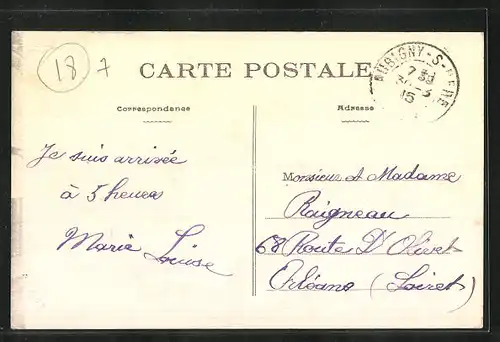 18 7
CARTE POSTALE
AUBIGNY-S-NERE
7
30-3
15
Correspondance
Adresse
Je suis arrivée
à 5 heures
Marie Louise
Monsieur et Madame
Raigneau
68 Route D'Olivet
Orléans (Loiret)